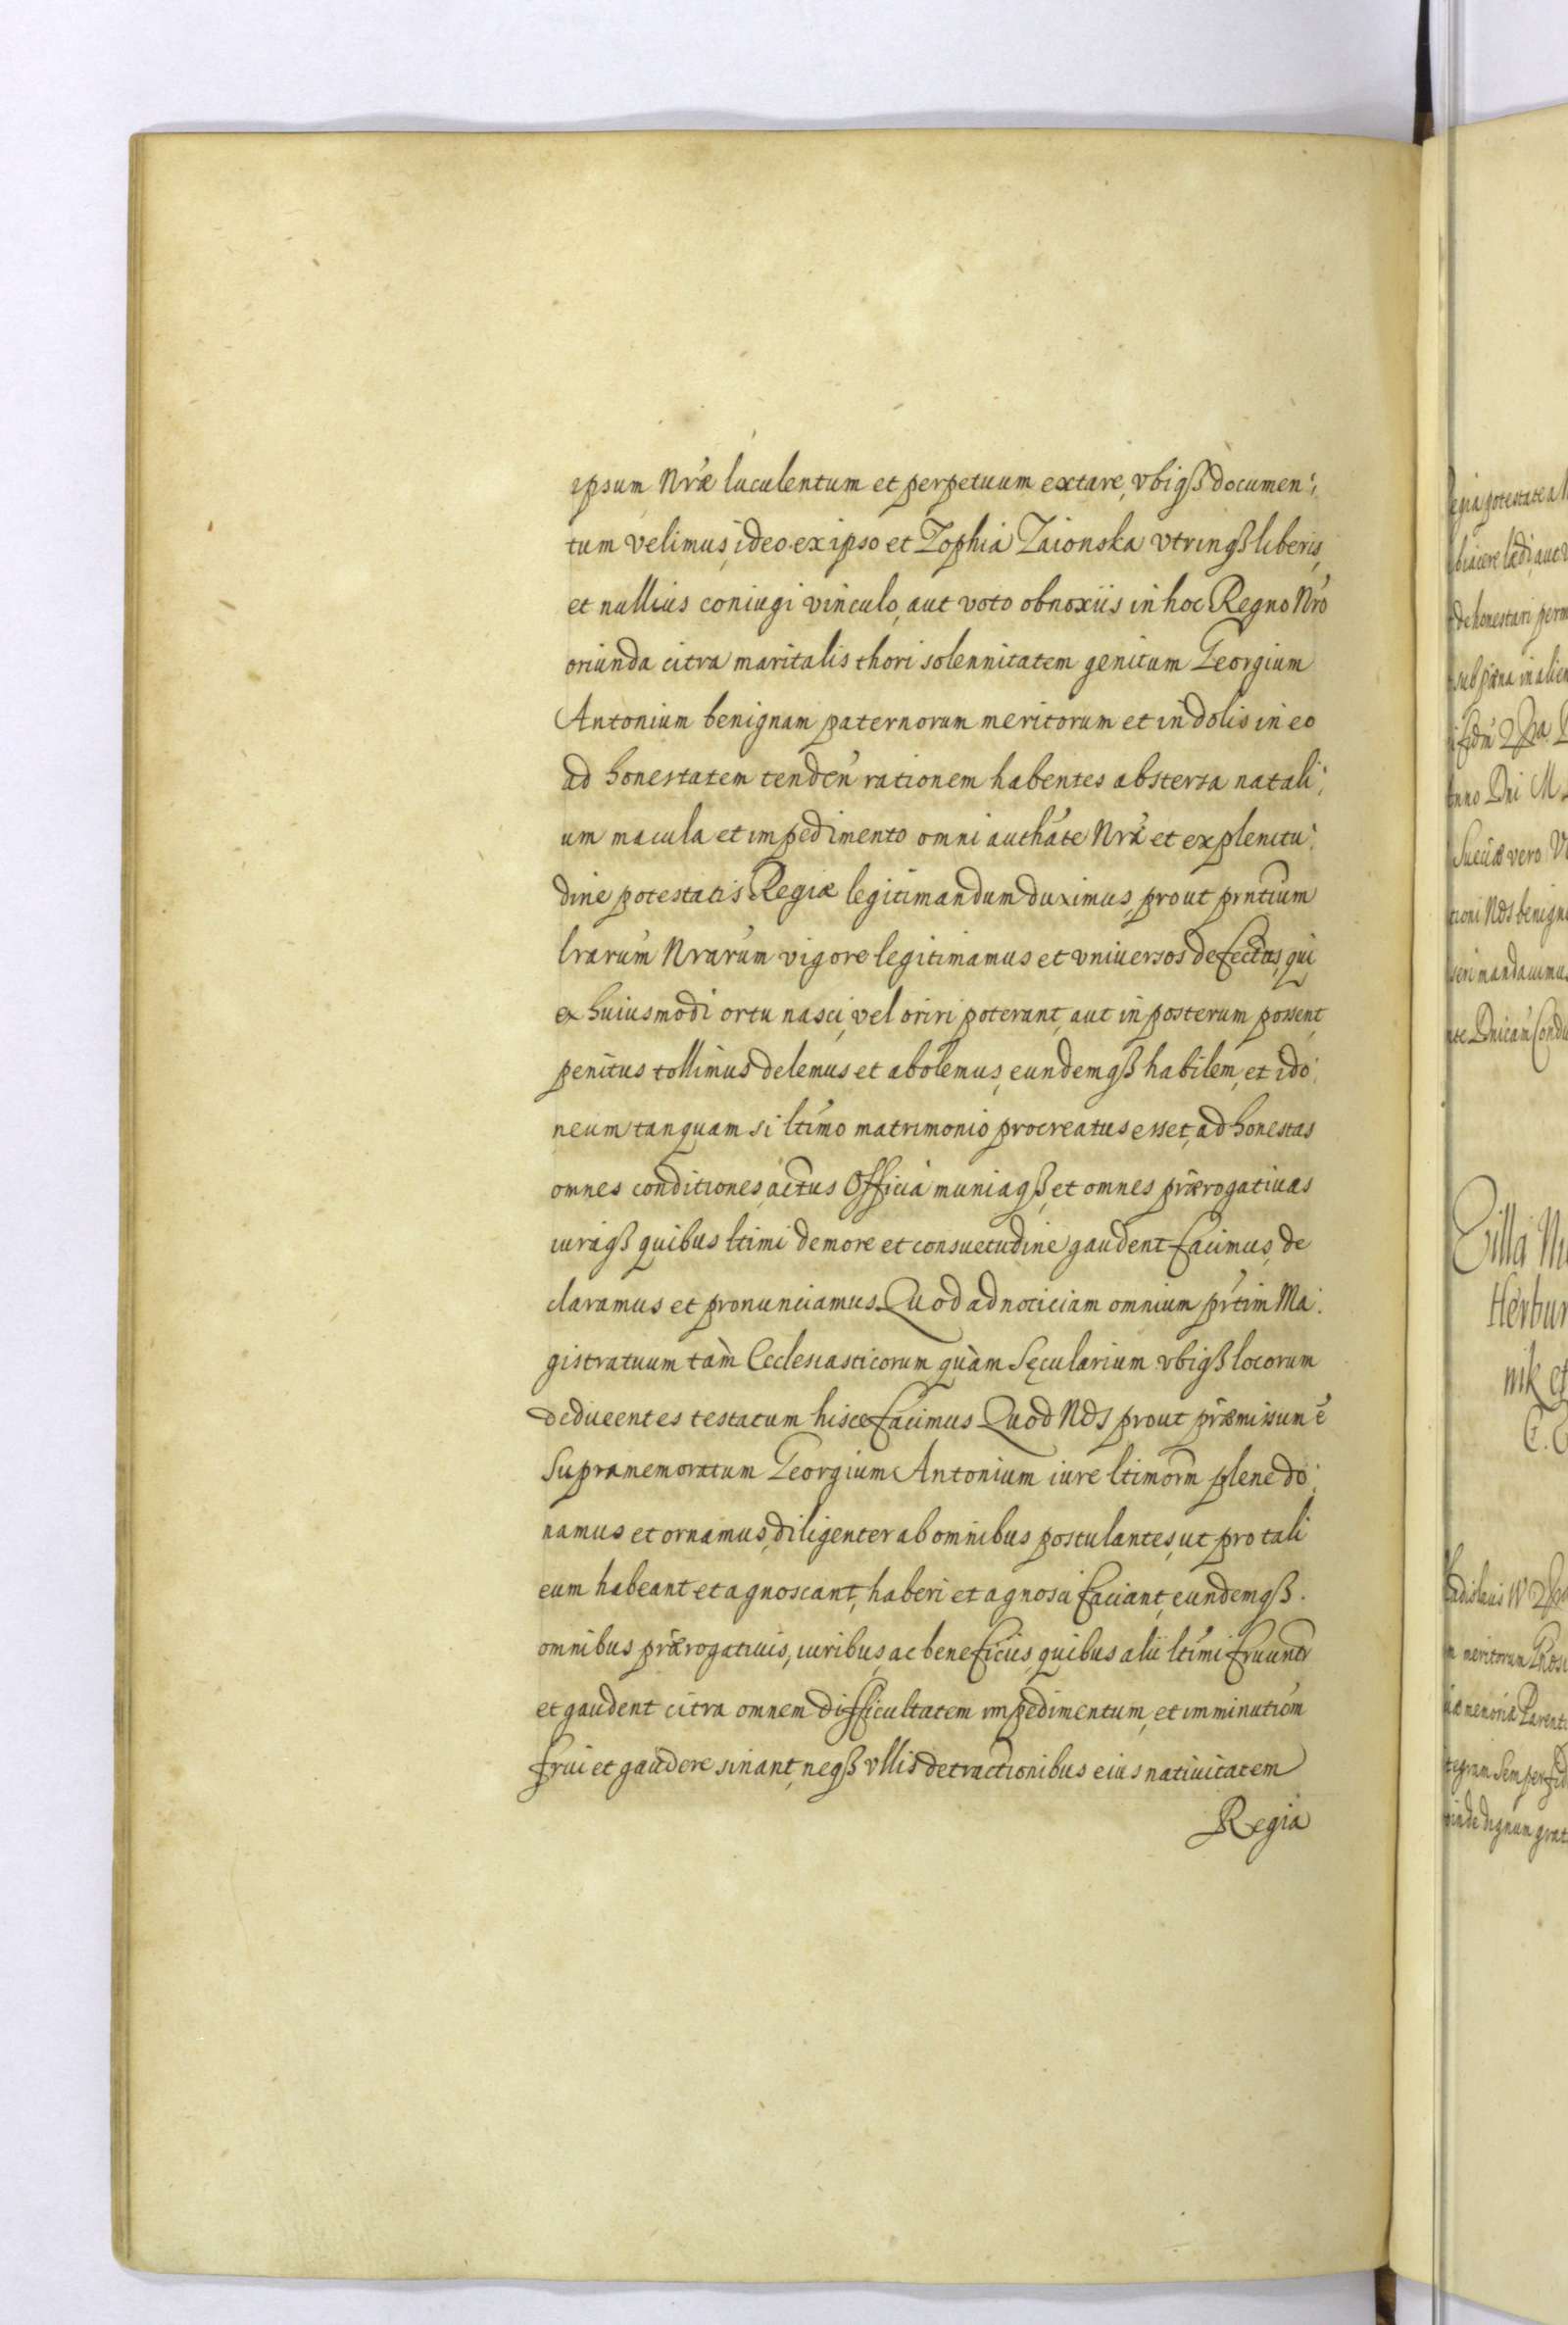 ipsum Nræ luculentum et perpetuum extare, vbiqß documen:
tum velimus, ideo ex ipso et Zophia Zaionska vtrinqß liberis,
et nullius coniugi vinculo, aut voto obnoxiis in hoc Regno Nro
oriunda citra maritalis thori solennitatem genitum Georgium
Antonium benignam paternorum meritorum et indolis in eo
ad honestatem tendeń rationem habentes abstersa natali:
um macula et impedimento omni autháte Nrá et ex plenitu:
dine potestatis Regiæ legitimandum duximus, prout prntium
lrarum Nrarum vigore legitimamus et vniuersos defectus, qui
ex huiusmodi ortu nasci, vel oriri poterant, aut in posterum possent,
penitus tollimus delemus et abolemus, eundemqß habilem, et ido:
neum tanquam si ltimo matrimonio procreatus esset, ad honestas
omnes conditiones, actus Officia muniaqß, et omnes prærogatiuas
iuraqß quibus ltimi de more et consuetudine gaudent facimus, de
claramus et pronunciamus. Quod ad noticiam omnium prtim Ma:
gistratuum tam Ecclesiasticorum quàm Sęcularium vbiqß locorum
deducentes testatum hisce facimus Quod Nos prout præmissum é
Supramemoratum Georgium Antonium iure ltimorm plene do:
namus et ornamus, diligenter ab omnibus postulantes, ut pro tali
eum habeant et agnoscant, haberi et agnosci faciant, eundemqß.
omnibus prærogatiuis, iuribus, ac beneficiis, quibus alii ltimi fruuntr
et gaudent citra omnem difficultatem impedimentum, et imminutiom
frui et gaudere sinant, neqß vllis detractionibus eius natiuitatem
Regia
egia potestate a
biacere lædi, aut
dehonestari perm
sub pæna in alien
Anno Dni M
Sueciæ vero
tioni Nos benign
seri mandauimus
Cilla
Herbur
nik et
C. C
adislaus IV
m meritorum
iæ memoria Parent
tegram Semper fid
inde dignum grat